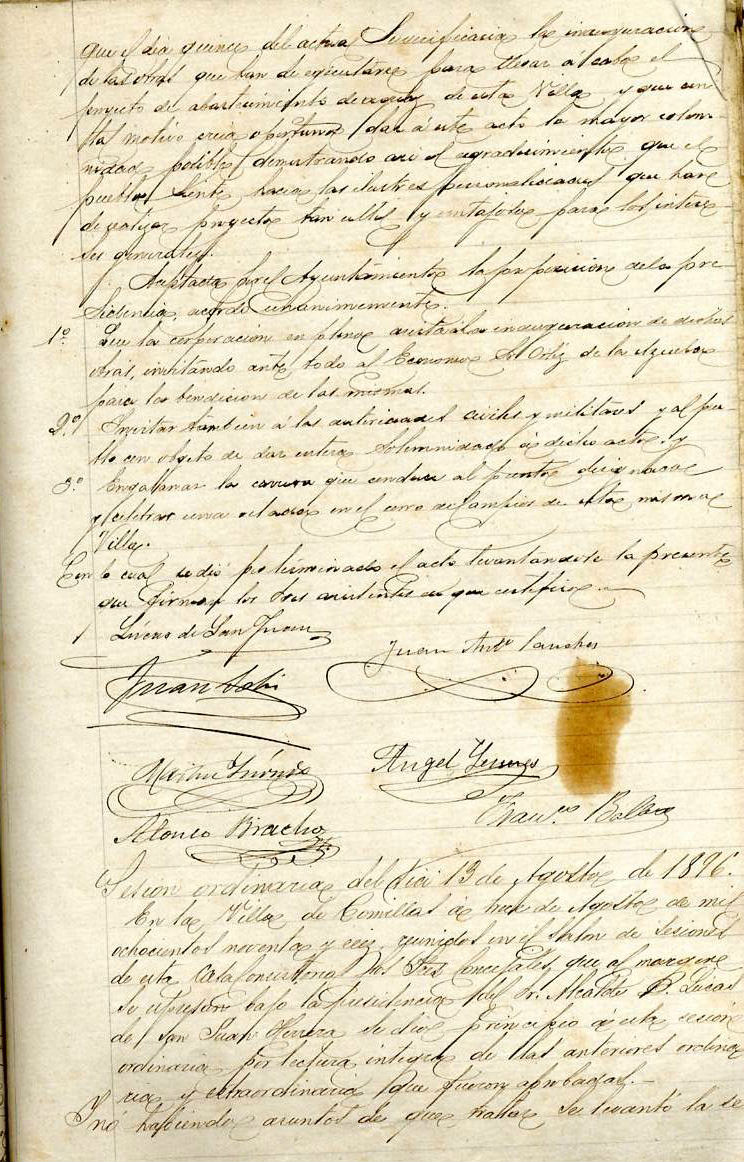 que el dia quince del actual se verificaria la inauguracion
de las obras que han de ejecutarse para llevar a cabo el
proyecto de abastecimiento de aguas de esta Villa y que con
tal motivo creia oportuno dar á este acto la mayor solem-
nidad posible demostrando asi el agradecimiento que el
pueblo siente hacia las ilustres personalidades que han
de realizar proyecto tan util y para los intere
ses generales.
Aceptada por el Ayuntamiento la proposicion de la pre
sidencia, acordó unanimemente.
1º Que la corporacion en pleno asista á la inauguracion de dichas
obras, invitando ante todo al Economo Sr Ortiz de la Azuela
para la bendicion de las mismas.
2º Invitar tambien á las autoridades civiles y militares y al pue
blo con objeto de dar entera solemnidad á dicho acto y
3º Engalanar la carrera que conduce al punto designado
y celebrar una velada en el corro de Campios de esta misma
Villa.
Con lo cual se dió por terminado el acto levantandose la presente
que firman los Sres asistentes de que certifico.
Lúcas de San Juan
Juan Antº Sanchez
Juan
Martin
Angel
Alonso Bracho
Franco
Sesion ordinaria del dia 13 de Agosto de 1896.
En la Villa de Comillas á trece de Agosto de mil
ochocientos noventa y seis, reunidos en el salon de sesiones
de esta Casa Consistorial los Sres Concejales que al margen
se espresan bajo la presidencia del Sr. Alcalde D. Lucas
de San Juan Herrera se dió principio á esta sesion
ordinaria por lectura integra de las anteriores ordina
ria y extraordinaria que fueron aprobadas.
Y no habiendo asuntos de que tratar se levantó la se